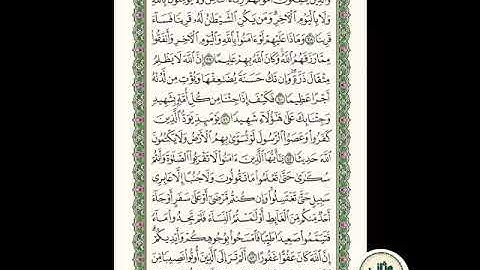 وَٱلَّذِينَ يُنفِقُونَ أَمْوَٰلَهُمْ رِئَآءَ ٱلنَّاسِ وَلَا يُؤْمِنُونَ بِٱللَّهِ
وَلَا بِٱلْيَوْمِ ٱلْءَاخِرِ وَمَن يَكُنِ ٱلشَّيْطَٰنُ لَهُۥ قَرِينًا فَسَآءَ
قَرِينًا ٣٨ وَمَاذَا عَلَيْهِمْ لَوْ ءَامَنُوا۟ بِٱللَّهِ وَٱلْيَوْمِ ٱلْءَاخِرِ وَأَنفَقُوا۟
مِمَّا رَزَقَهُمُ ٱللَّهُ وَكَانَ ٱللَّهُ بِهِمْ عَلِيمًا ٣٩ إِنَّ ٱللَّهَ لَا يَظْلِمُ
مِثْقَالَ ذَرَّةٍ وَإِن تَكُ حَسَنَةً يُضَٰعِفْهَا وَيُؤْتِ مِن لَّدُنْهُ
أَجْرًا عَظِيمًا ٤٠ فَكَيْفَ إِذَا جِئْنَا مِن كُلِّ أُمَّةٍۭ بِشَهِيدٍ
وَجِئْنَا بِكَ عَلَىٰ هَٰٓؤُلَآءِ شَهِيدًا ٤١ يَوْمَئِذٍ يَوَدُّ ٱلَّذِينَ
كَفَرُوا۟ وَعَصَوُا۟ ٱلرَّسُولَ لَوْ تُسَوَّىٰ بِهِمُ ٱلْأَرْضُ وَلَا يَكْتُمُونَ
ٱللَّهَ حَدِيثًا ٤٢ يَٰٓأَيُّهَا ٱلَّذِينَ ءَامَنُوا۟ لَا تَقْرَبُوا۟ ٱلصَّلَوٰةَ وَأَنتُمْ
سُكَٰرَىٰ حَتَّىٰ تَعْلَمُوا۟ مَا تَقُولُونَ وَلَا جُنُبًا إِلَّا عَابِرِى
سَبِيلٍ حَتَّىٰ تَغْتَسِلُوا۟ وَإِن كُنتُم مَّرْضَىٰٓ أَوْ عَلَىٰ سَفَرٍ أَوْ جَآءَ
أَحَدٌ مِّنكُم مِّنَ ٱلْغَآئِطِ أَوْ لَٰمَسْتُمُ ٱلنِّسَآءَ فَلَمْ تَجِدُوا۟ مَآءً
فَتَيَمَّمُوا۟ صَعِيدًا طَيِّبًا فَٱمْسَحُوا۟ بِوُجُوهِكُمْ وَأَيْدِيكُمْ
إِنَّ ٱللَّهَ كَانَ عَفُوًّا غَفُورًا ٤٣ أَلَمْ تَرَ إِلَى ٱلَّذِينَ أُوتُوا۟ نَصِيبًا مِّنَ